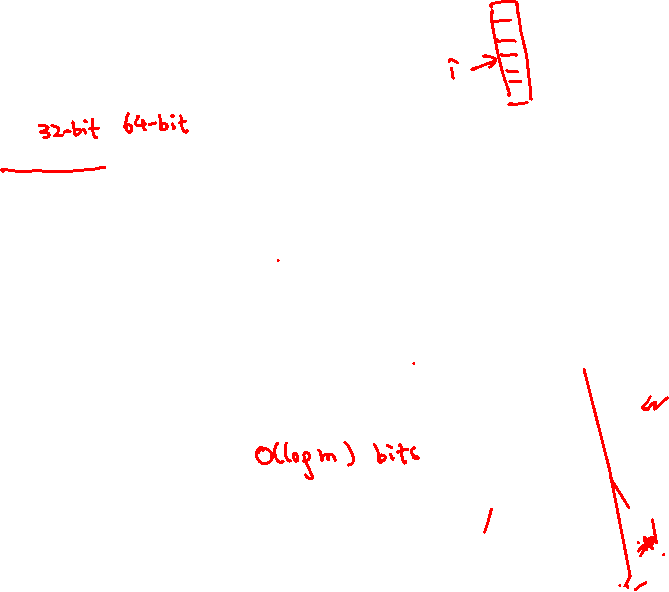 i
32-bit 64-bit
O(log m) bits